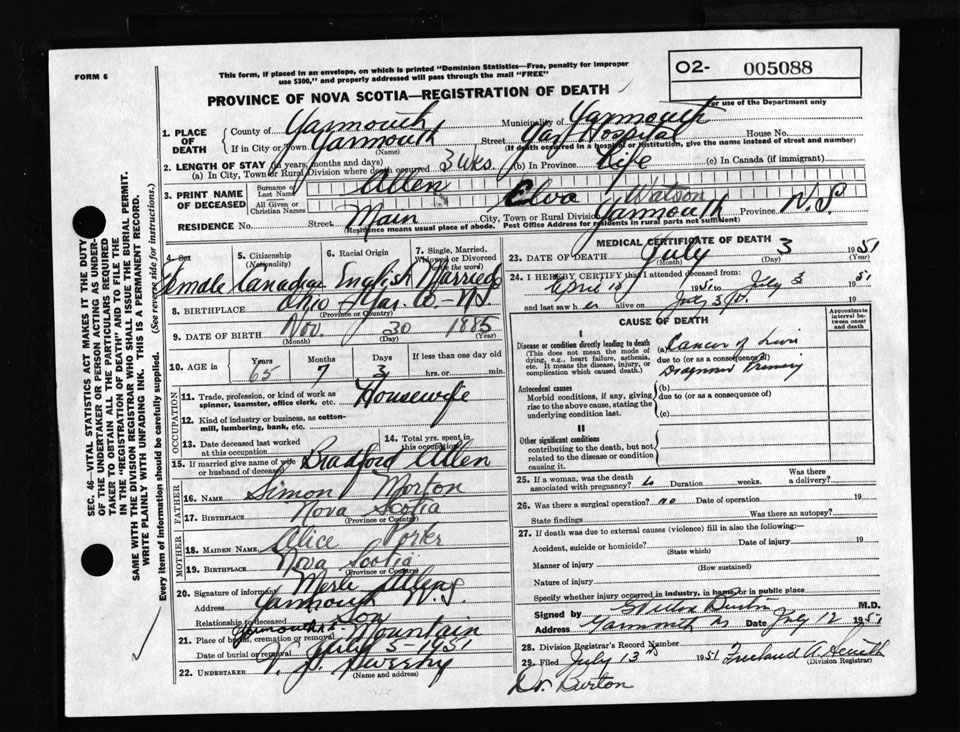 FORM 6
This form, if placed in an envelope, on which is printed "Dominion Statistics—Free, penalty for improper
use $300," and properly addressed will pass through the mail "FREE"
O2- 005088
For use of the Department only
PROVINCE OF NOVA SCOTIA—REGISTRATION OF DEATH
1. PLACE OF DEATH
County of Yarmouth Municipality of Yarmouth
If in City or Town Yarmouth Street Yar. Hospital House No.
(Name) (If death occurred in a hospital or institution, give the name instead of street and number)
2. LENGTH OF STAY (in years, months and days)
(a) In City, Town or Rural Division where death occurred 3 wks. (b) In Province Life (c) In Canada (if immigrant)
3. PRINT NAME OF DECEASED
Surname or Last Name Allen
All Given or Christian Names Elva Watson
RESIDENCE No. Street Main City, Town or Rural Division Yarmouth Province N.S.
(Residence means usual place of abode. Post Office Address for residents in rural parts not sufficient)
4. Sex
Female
5. Citizenship (Nationality)
Canadian
6. Racial Origin
English
7. Single, Married, Widowed or Divorced (write the word)
Married
8. BIRTHPLACE Ohio Yar. Co - N.S.
(Province or Country)
9. DATE OF BIRTH Nov. 30 1885
(Month) (Day) (Year)
10. AGE in Years Months Days If less than one day old
65 7 3 hrs. or min.
OCCUPATION
11. Trade, profession, or kind of work as spinner, teamster, office clerk, etc. Housewife
12. Kind of industry or business, as cotton-mill, lumbering, bank, etc.
13. Date deceased last worked at this occupation
14. Total yrs. spent in this occupation
15. If married give name of wife or husband of deceased Bradford Allen
FATHER
16. NAME Simon Morton
17. BIRTHPLACE Nova Scotia
(Province or Country)
MOTHER
18. MAIDEN NAME Alice Porter
19. BIRTHPLACE Nova Scotia
(Province or Country)
20. Signature of informant Merle
Address Yarmouth N.S.
Relationship to deceased Son
21. Place of burial, cremation or removal Mountain
Date of burial or removal July 5-1951
22. UNDERTAKER V. S. Sweeny
(Name and address)
MEDICAL CERTIFICATE OF DEATH
23. DATE OF DEATH July 3 1951
(Month) (Day) (Year)
24. I HEREBY CERTIFY that I attended deceased from:
April 18 1951 to July 3 51
and last saw h er alive on July 3 1951
CAUSE OF DEATH
Approximate interval between onset and death
I
Disease or condition directly leading to death
(This does not mean the mode of dying, e.g., heart failure, asthenia, etc. It means the disease, injury, or complication which caused death.)
(a) Cancer of Liver
due to (or as a consequence of)
Diagnosed Primary
Antecedent causes
Morbid conditions, if any, giving rise to the above cause, stating the underlying condition last.
(b)
due to (or as a consequence of)
(c)
II
Other significant conditions
contributing to the death, but not related to the disease or condition causing it.
25. If a woman, was the death associated with pregnancy? no Duration weeks. Was there a delivery?
26. Was there a surgical operation? no Date of operation 19
State findings Was there an autopsy?
27. If death was due to external causes (violence) fill in also the following:—
Accident, suicide or homicide? Date of injury 19
(State which)
Manner of injury
(How sustained)
Nature of injury
Specify whether injury occurred in industry, in home or in public place
Signed by Burton M.D.
Address Yarmouth NS Date July 12 1951
28. Division Registrar's Record Number
29. Filed July 13th 1951 Freeland A. Smith
(Division Registrar)
Dr. Burton
SEC. 46—VITAL STATISTICS ACT MAKES IT THE DUTY
OF THE UNDERTAKER OR PERSON ACTING AS UNDERTAKER
TO OBTAIN ALL THE PARTICULARS REQUIRED
IN THE "REGISTRATION OF DEATH" AND TO FILE THE
SAME WITH THE DIVISION REGISTRAR WHO SHALL ISSUE THE BURIAL PERMIT.
WRITE PLAINLY WITH UNFADING INK. THIS IS A PERMANENT RECORD.
Every item of information should be carefully supplied. (See reverse side for instructions.)